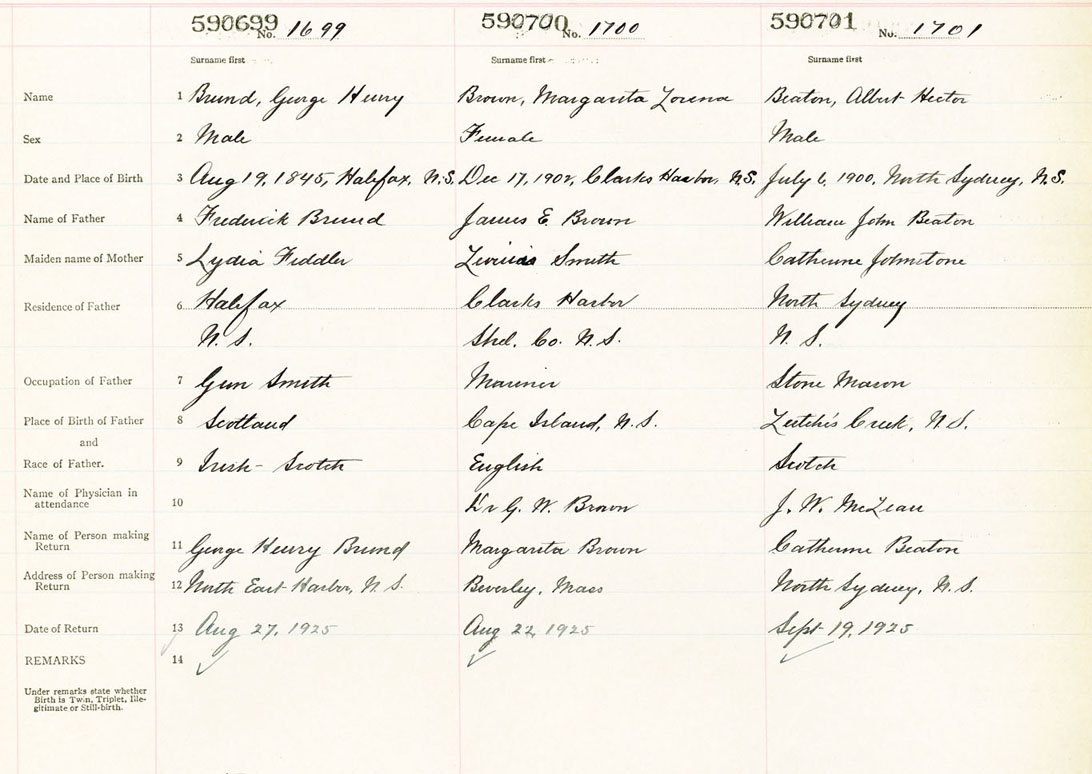 590699 No. 1699 590700 No. 1700 590701 No. 1701
Surname first Surname first Surname first
Name 1 Brund, George Henry Brown, Margarita Lorena Beaton, Albert Hector
Sex 2 Male Female Male
Date and Place of Birth 3 Aug 19, 1845, Halifax, N.S. Dec 17, 1902, Clarks Harbor, N.S. July 6, 1900, North Sydney, N.S.
Name of Father 4 Frederick Brund James E. Brown William John Beaton
Maiden name of Mother 5 Lydia Fiddler Smith Catherine Johnstone
Residence of Father 6 Halifax Clarks Harbor North Sydney
N. S. Shel. Co. N. S. N. S.
Occupation of Father 7 Gun Smith Mariner Stone Mason
Place of Birth of Father 8 Scotland Cape Island, N. S. Leitch's Creek, N. S.
and
Race of Father. 9 Irish - Scotch English Scotch
Name of Physician in
attendance 10 Dr G. W. Brown J. W. McLean
Name of Person making
Return 11 George Henry Brund Margarita Brown Catherine Beaton
Address of Person making
Return 12 North East Harbor, N. S. Beverley, Mass North Sydney, N. S.
Date of Return 13 Aug 27, 1925 Aug 22, 1925 Sept 19, 1925
REMARKS 14
Under remarks state whether
Birth is Twin, Triplet, Ille-
gitimate or Still-birth.